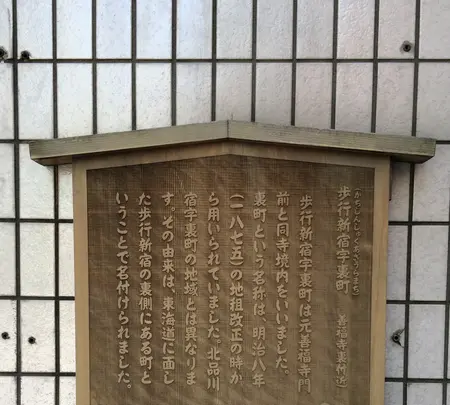 (かちしんしゅくあざうらまち)
歩行新宿字裏町 (善福寺裏付近)
歩行新宿字裏町は元善福寺門
前と同寺境内をいいました。
裏町という名称は、明治八年
(一八七五)の地租改正の時か
ら用いられていました。北品川
宿字裏町の地域とは異なりま
す。その由来は、東海道に面し
た歩行新宿の裏側にある町と
いうことで名付けられました。